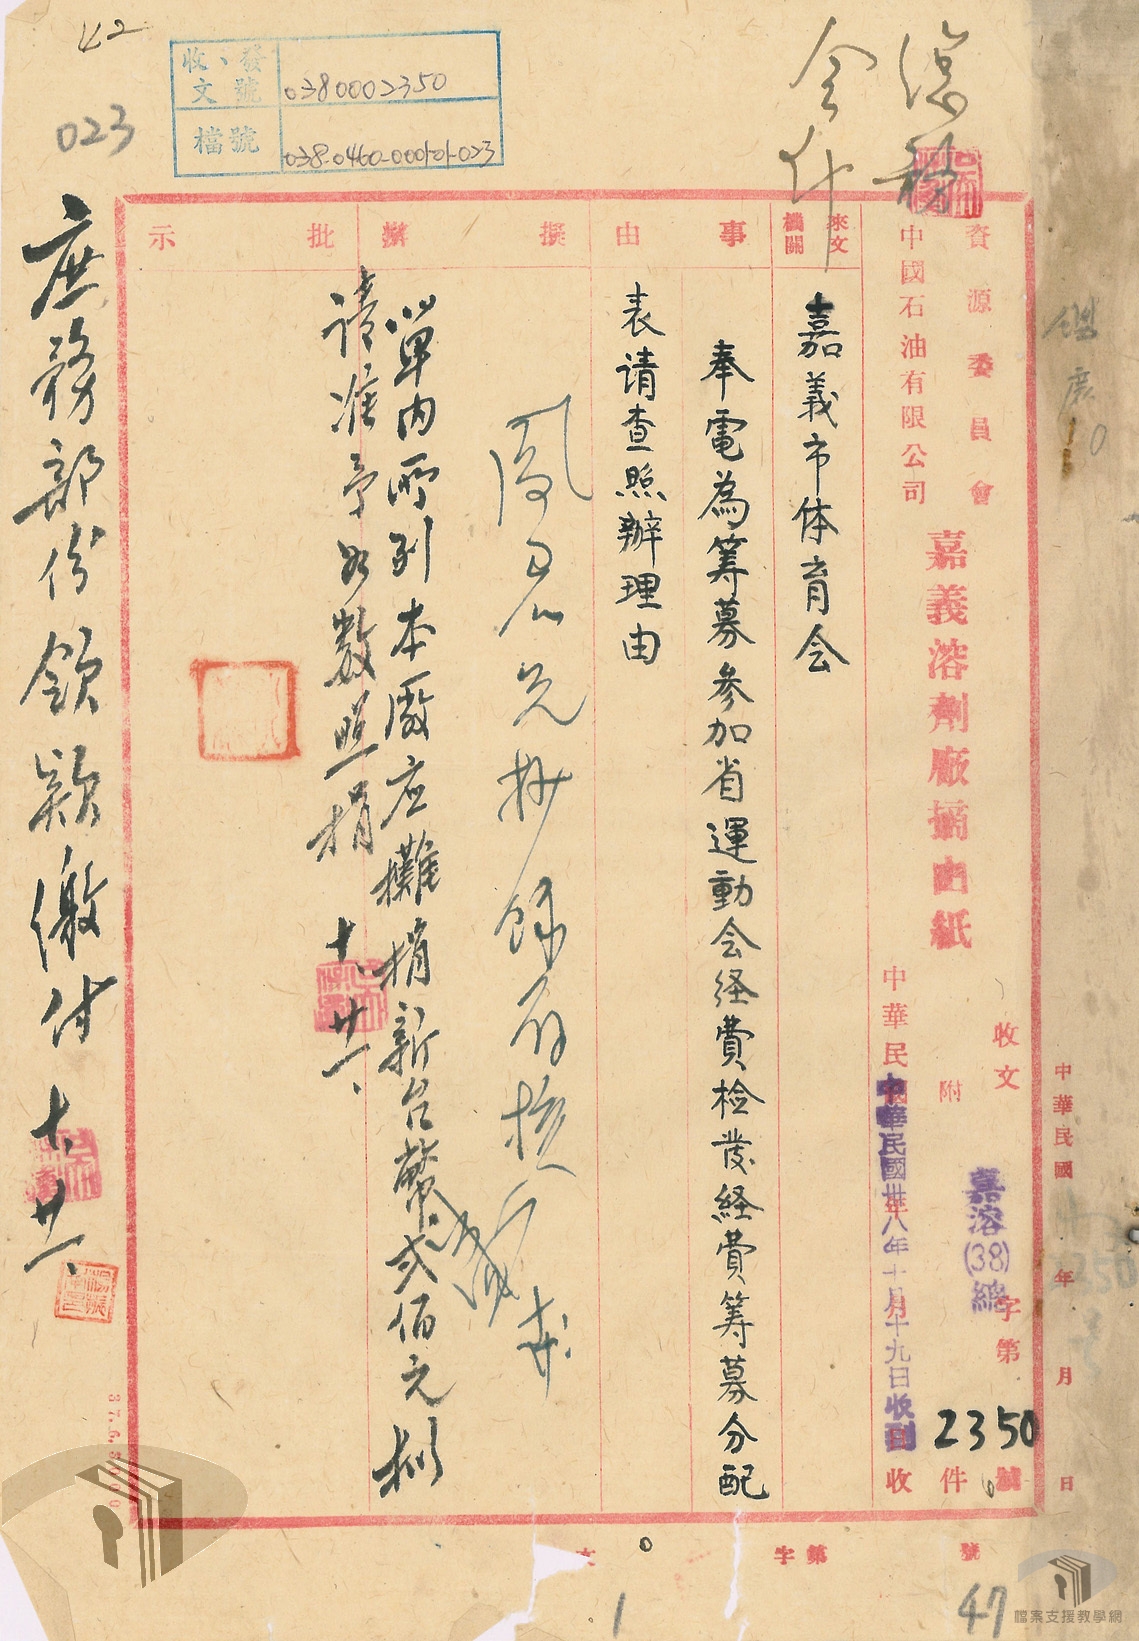 42
023
收、發文號
0380002350
檔號
038-0460-0001-01-023
總務
会計
資源委員會
中國石油有限公司
嘉義溶劑廠摘由紙
收文
嘉溶(38)總
字第
2350
號
附
件
中華民國
年
月
日收
中華民國卅八年十月十九日收到
來文機關
嘉義市体育会
事由
奉電為筹募參加省運動会経費检发経費筹募分配
表請查照辦理由
擬辦
單內所列本廠应攤捐新台幣弍佰元拟
請准予如數照捐
十、廿一、
批示
庶務部份領款繳付 十、廿一、
中華民國
年
月
日
2350
號
字第
號
1
47
檔案支援教學網